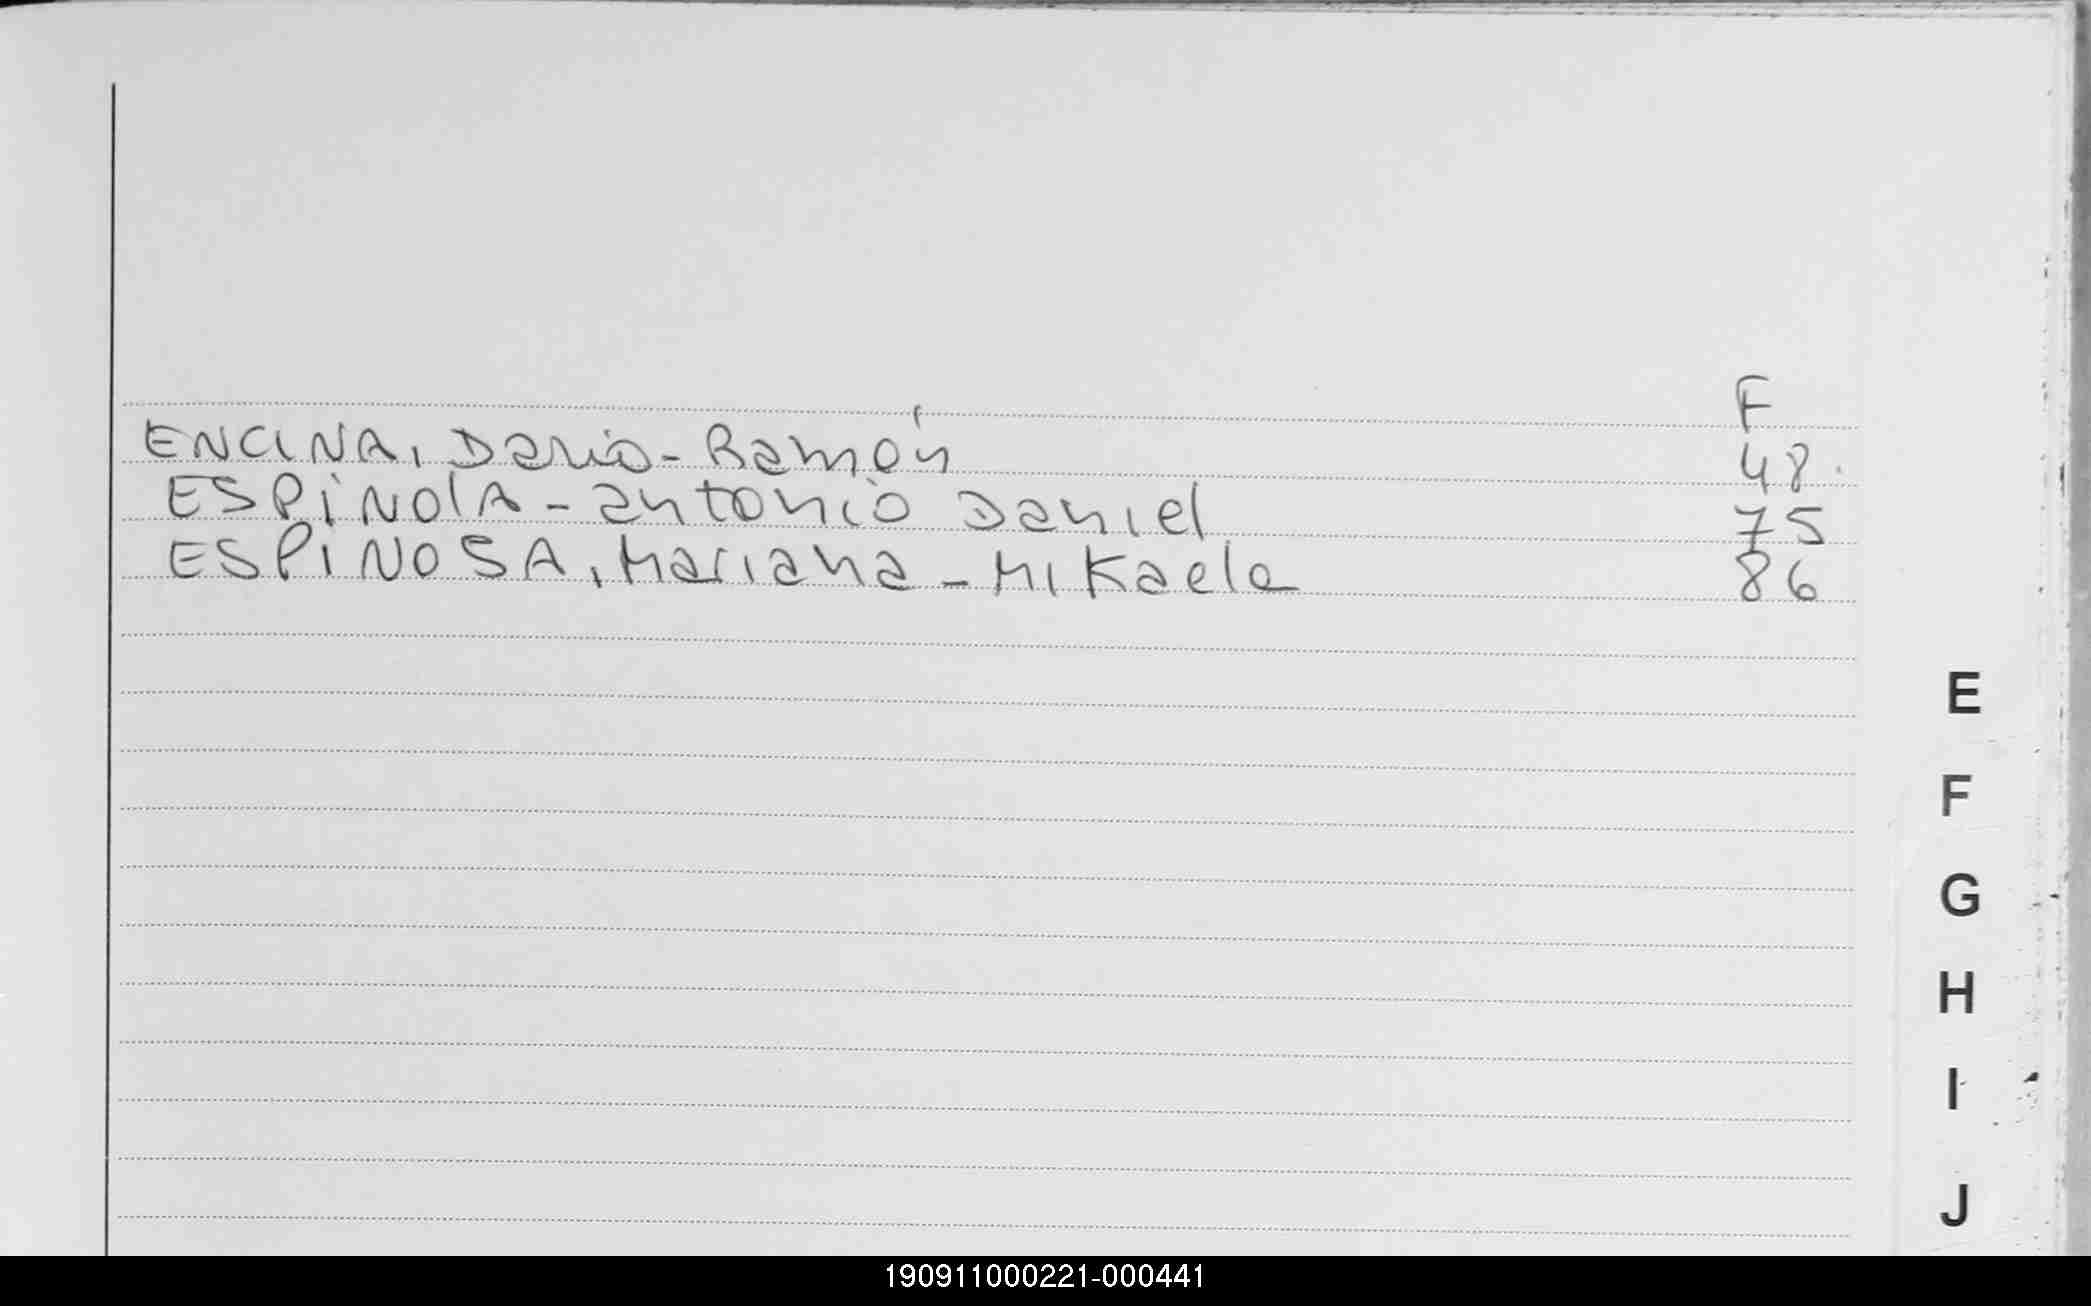 F
ENCINA, Dario-Ramón 48.
ESPINOlA-antonio Daniel 75
ESPINOSA, Mariana-MiKaela 86
E
F
G
H
I
J
190911000221-000441